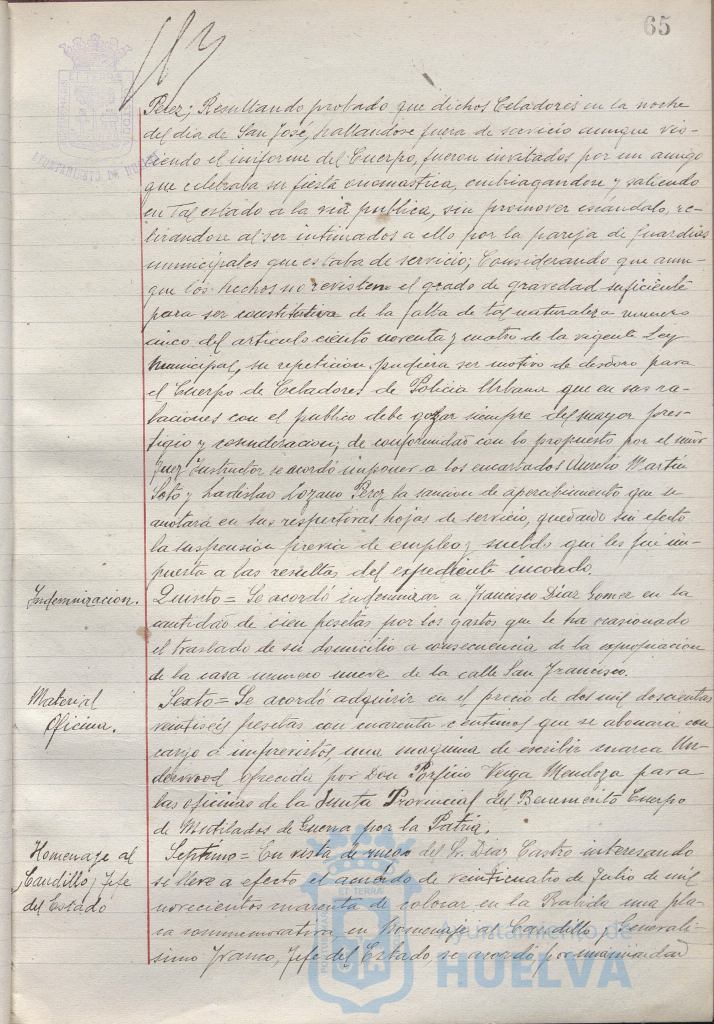 65
Perez; Resultando probado que dichos Celadores en la noche
del dia de San José, hallandose fuera de servicio aunque vis-
tiendo el uniforme del Cuerpo, fueron invitados por un amigo
que celebraba su fiesta onomastica, embriagandose y saliendo
en tal estado a la via publica, sin promover escándalo, re-
tirandose al ser intimados a ello por la pareja de Guardias
municipales que estaba de servicio; Considerando que aun-
que los hechos no revisten el grado de gravedad suficiente
para ser constitutiva de la falta de tal naturaleza numero
cinco del articulo ciento noventa y cuatro de la vigente Ley
Municipal, su repeticion pudiera ser motivo de desdoro para
el Cuerpo de Celadores de Policia Urbana que en sus re-
laciones con el publico debe gozar siempre del mayor pres-
tigio y consideracion; de conformidad con lo propuesto por el señor
Juez Instructor se acordó imponer a los encartados Aurelio Martin
Soto y Ladislao Lozano Perez la sancion de apercibimiento que se
anotará en sus respectivas hojas de servicio, quedando sin efecto
la suspension previa de empleo y sueldo que les fué im-
puesta a las resultas del expediente incoado.
Indemnizacion. Quinto = Se acordó indemnizar a Francisco Diaz Gomez en la
cantidad de cien pesetas por los gastos que le ha ocasionado
el traslado de su domicilio a consecuencia de la expropiacion
de la casa numero nueve de la calle San Francisco.
Material Sexto = Se acordó adquirir en el precio de dos mil doscientas
Oficina. veintiseis pesetas con cuarenta centimos que se abonará con
cargo a imprevistos, una maquina de escribir marca Un-
derwood ofrecida por Don Porfirio Veiga Mendoza para
las oficinas de la Junta Provincial del Benemérito Cuerpo
de Mutilados de Guerra por la Patria.
Homenaje al Septimo = En vista de ruego del Sr. Diaz Castro interesando
Caudillo y Jefe se lleve a efecto el acuerdo de veinticuatro de Julio de mil
del Estado novecientos cuarenta de colocar en la Rabida una pla-
ca conmemorativa en homenaje al Caudillo y Generali-
simo Franco, Jefe del Estado, se acordó, por unanimidad
Ayuntamiento de
HUELVA